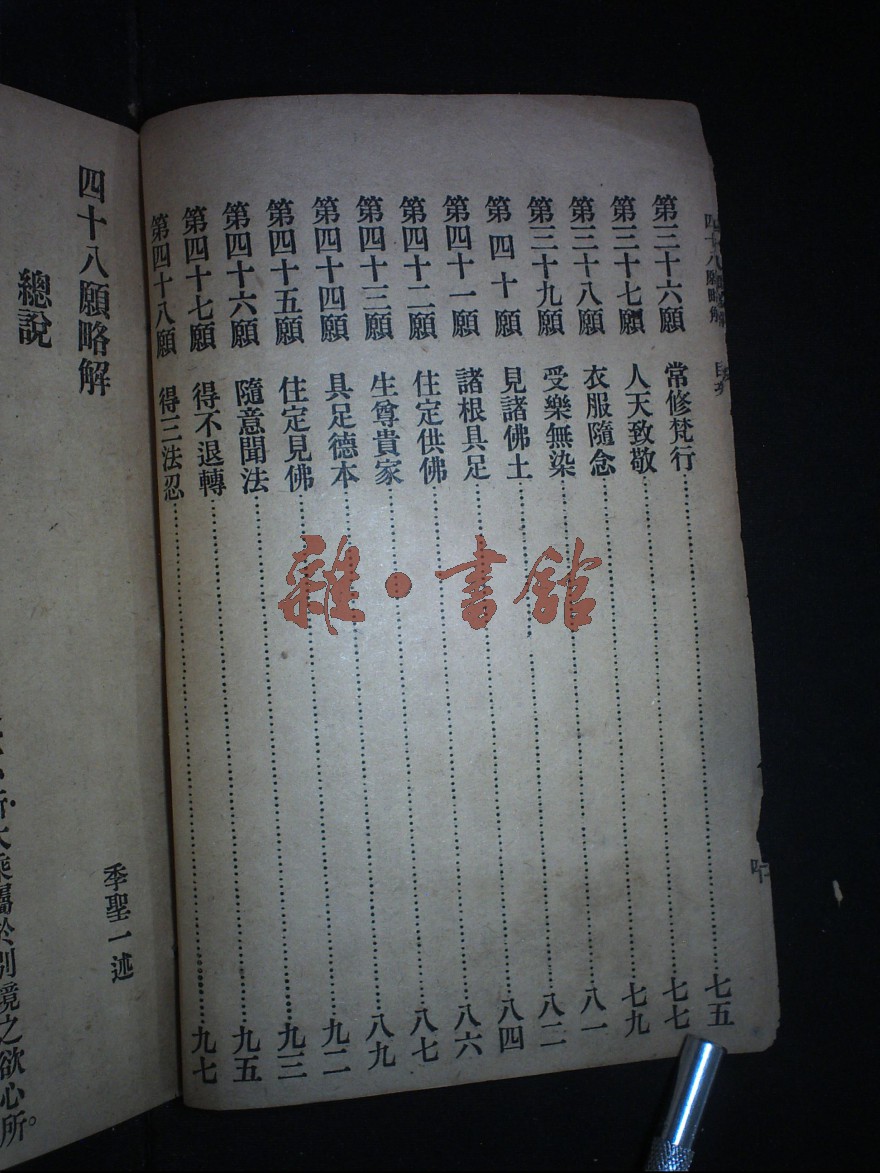 四十八願略解 目次
第三十六願 常修梵行……七五
第三十七願 人天致敬……七七
第三十八願 衣服隨念……七九
第三十九願 受樂無染……八一
第四十願 見諸佛土……八二
第四十一願 諸根具足……八四
第四十二願 住定供佛……八六
第四十三願 生尊貴家……八七
第四十四願 具足德本……八九
第四十五願 住定見佛……九二
第四十六願 隨意聞法……九三
第四十七願 得不退轉……九五
第四十八願 得三法忍……九七
四十八願略解
季聖一述
總說
大乘屬於別境之欲心所。
雜·書館